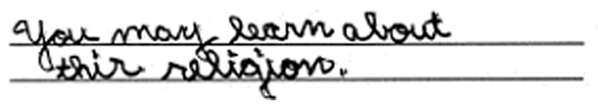 You may learn about
this religion.